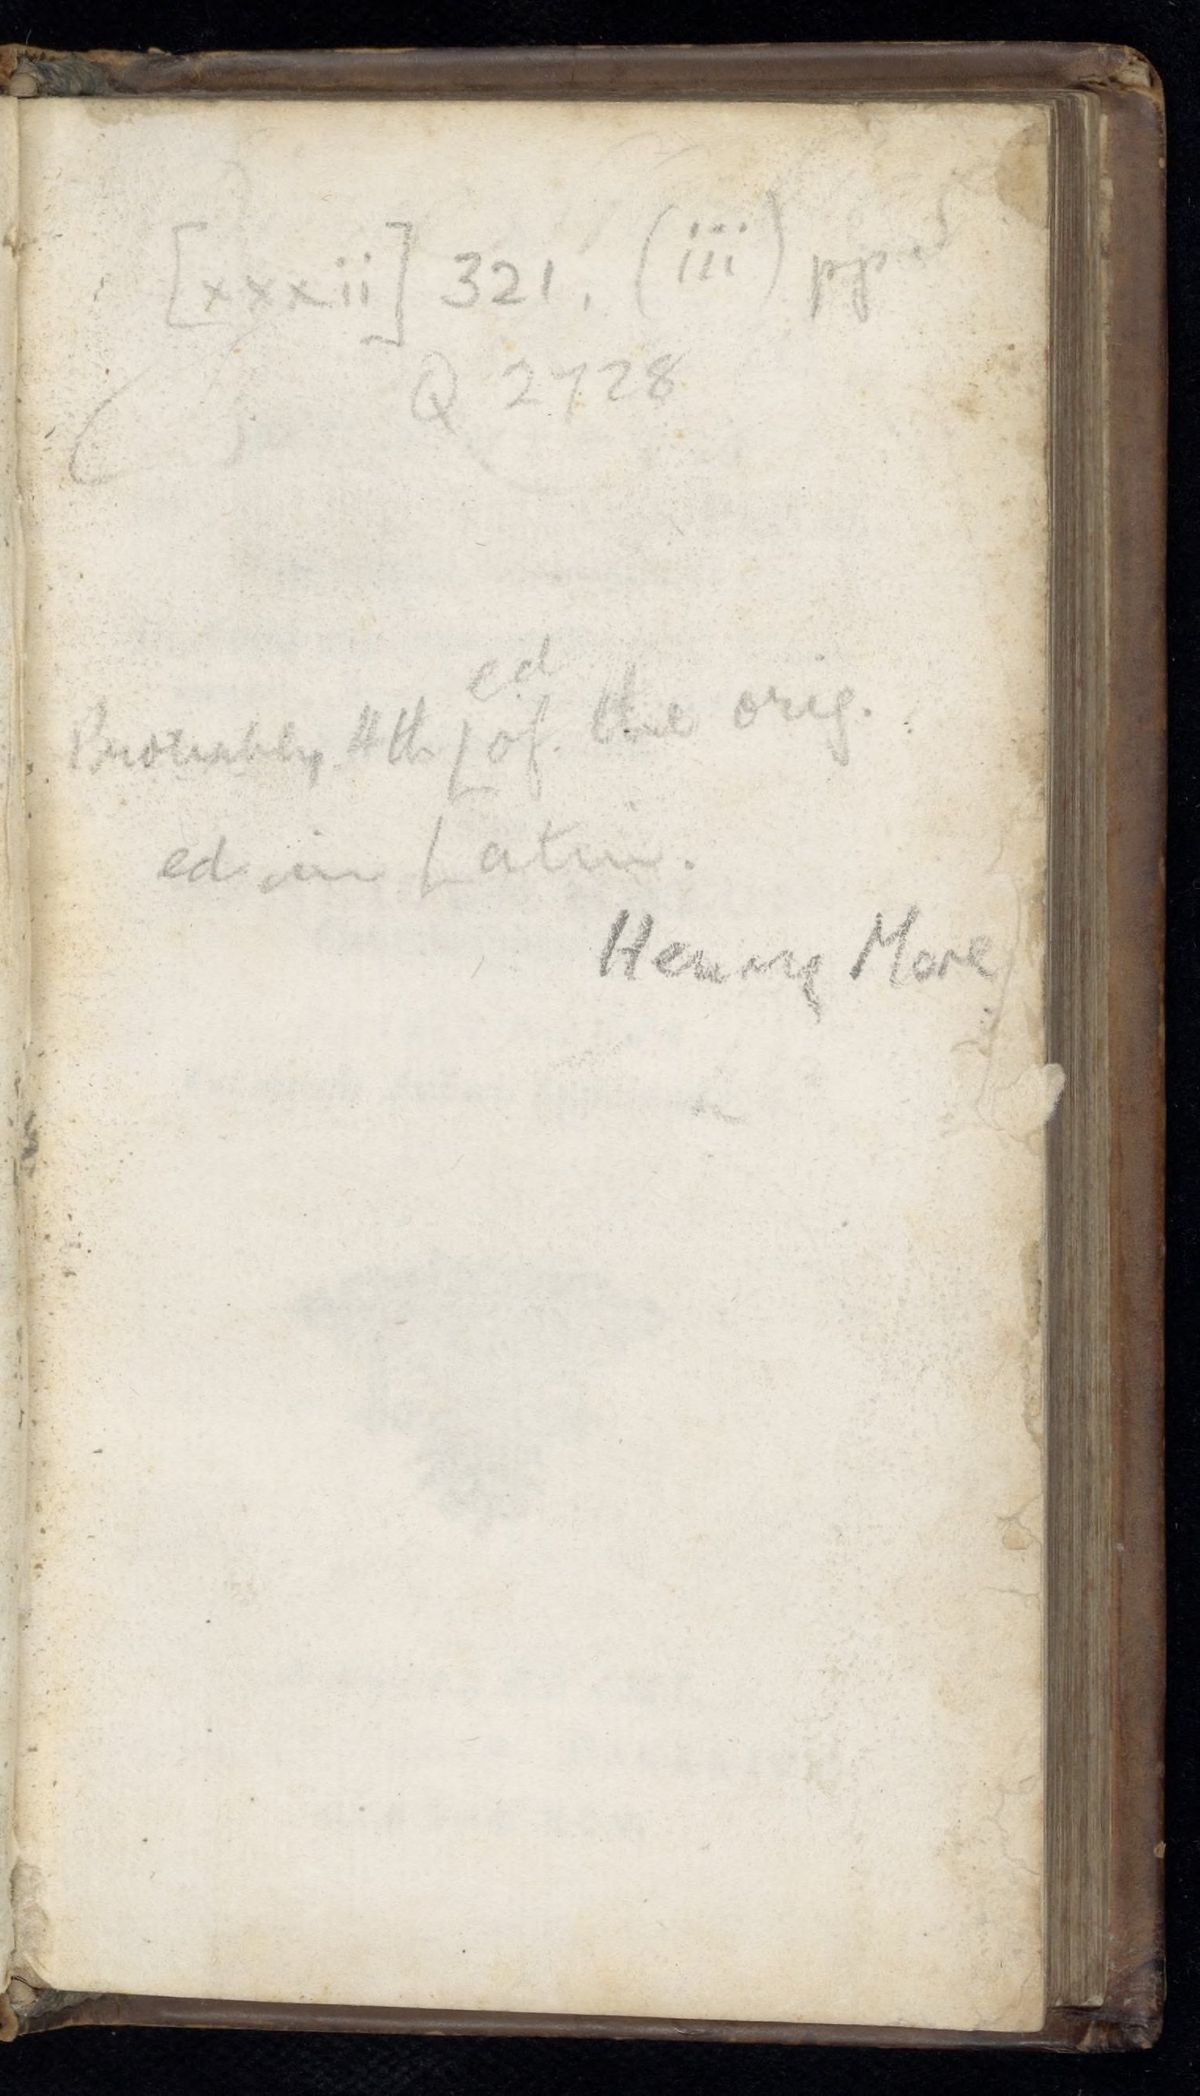 [xxxii] 321, (iii) pp.
Q 2728
Probably 4th ed of the orig.
ed in Latin.
Henry More